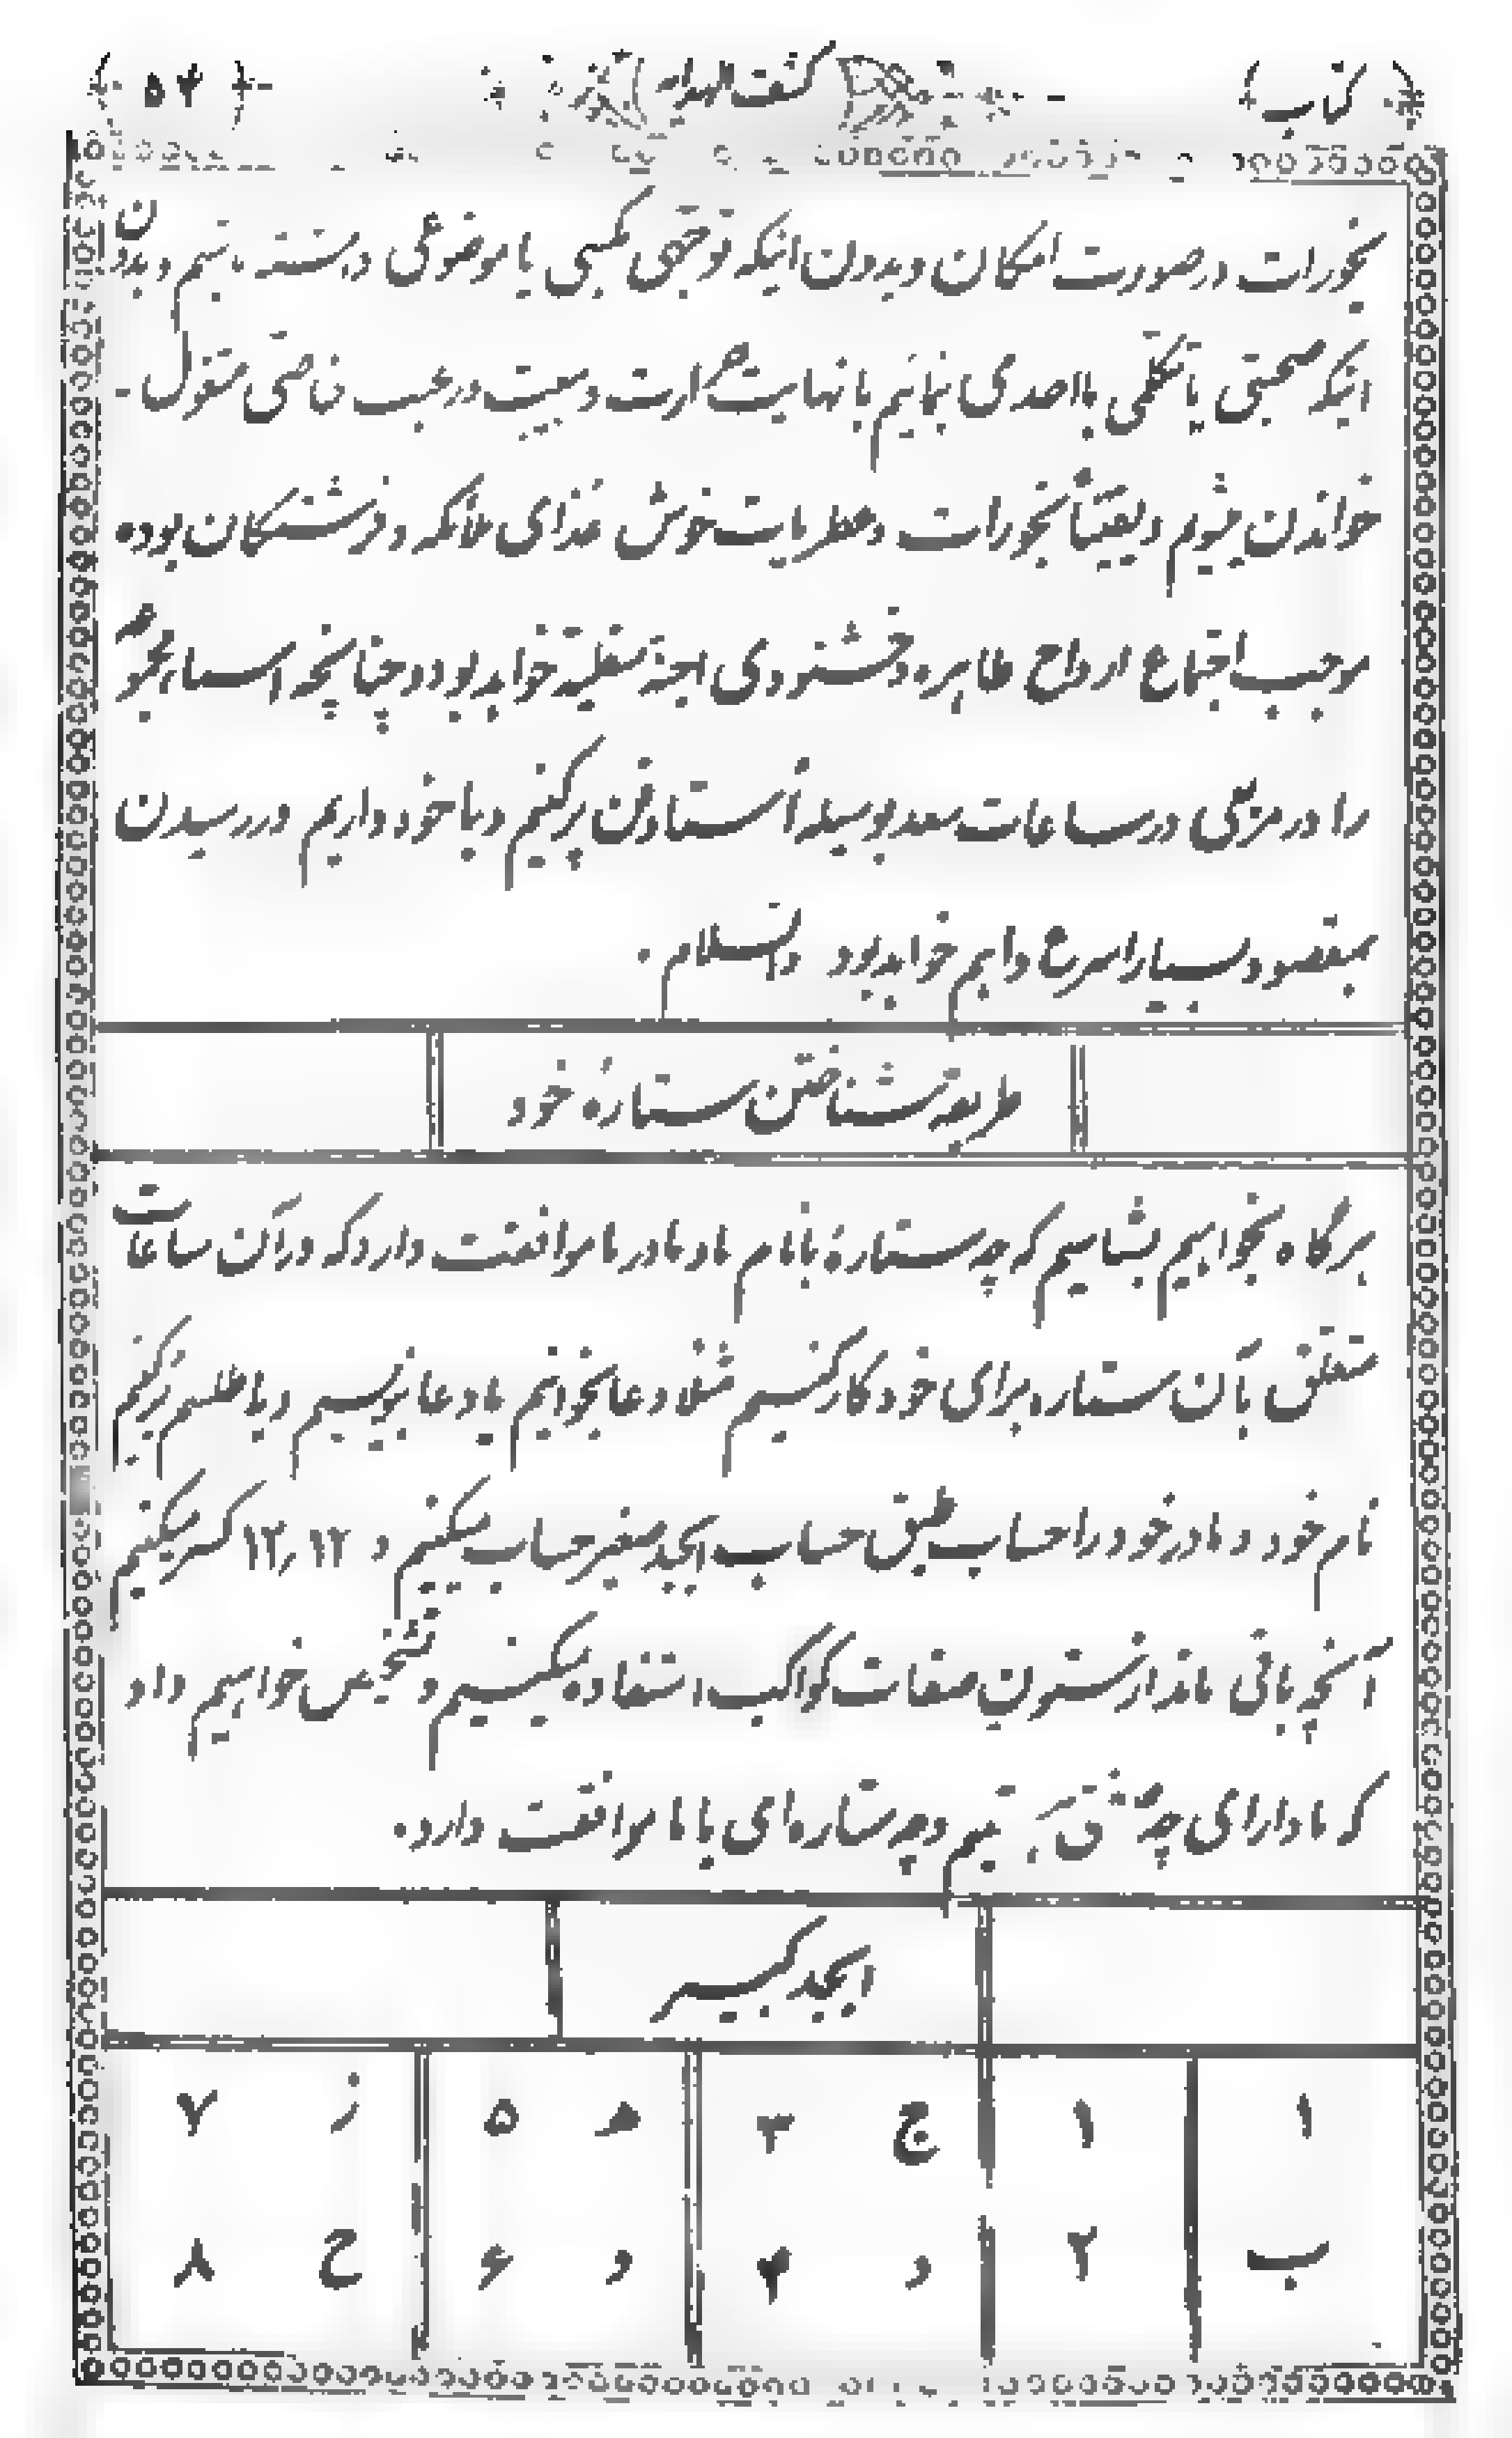 کتاب کشف الهدایه ۵۴
بخورات در صورت امکان و بدون اینکه توجهی بکسی یا موضوعی داشته باشیم و بدون
اینکه صحبتی یا تکلمی بااحدی بنمائیم با نهایت حرارت و در عیب خاصی مشغول
خواندن میشویم و یقیناً بخورات و عطریات خوش غذای ملائکه و فرشتگان بوده
موجب اجتماع ارواح طاهره و خشنودی اجنهٔ سفلیه خواهد بود و چنانچه اسماء
را در مربعی در ساعات سعد بوسیله استاد فن پر کنیم و با خود داریم در رسیدن
بمقصود بسیار اسرع و اهم خواهد بود والسلام .
طریقه شناختن ستارهٔ خود
هرگاه بخواهیم بشناسیم که چه ستارهٔ بانام ما و مادر ما موافقت دارد که در آن ساعات
متعلق بآن ستاره برای خود کار کنیم مثلا دعا بخوانیم یا دعا بنویسیم و یا طلسم پر کنیم
نام خود و مادر خود را حساب طبق حساب ابجد صغیر حساب میکنیم و ۱۲٫۱۲ کسر میکنیم
آنچه باقی ماند از ستون صفات کواکب استفاده میکنیم و تشخیص خواهیم داد
که ما دارای چه و چه ستاره‌ای با ما موافقت دارد.
ابجد کبیر
ا ۱ ج ۳ ه ۵ ز ۷
ب ۲ د ۴ و ۶ ح ۸